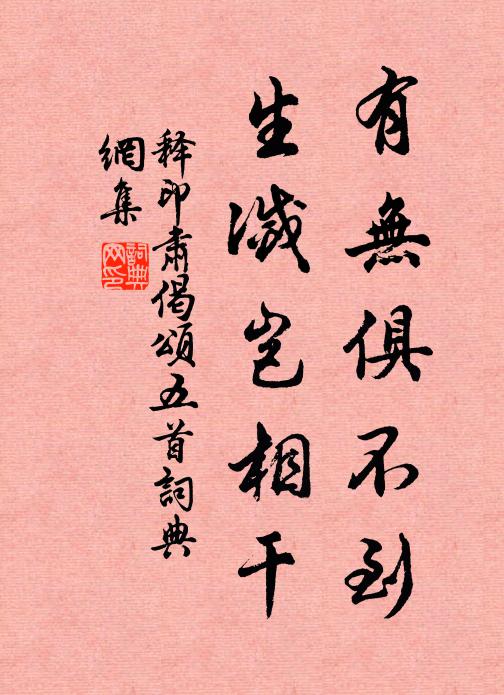 有無俱不到
生滅豈相干
釋印肅偈頌五首詞典
網集
詞典
网印